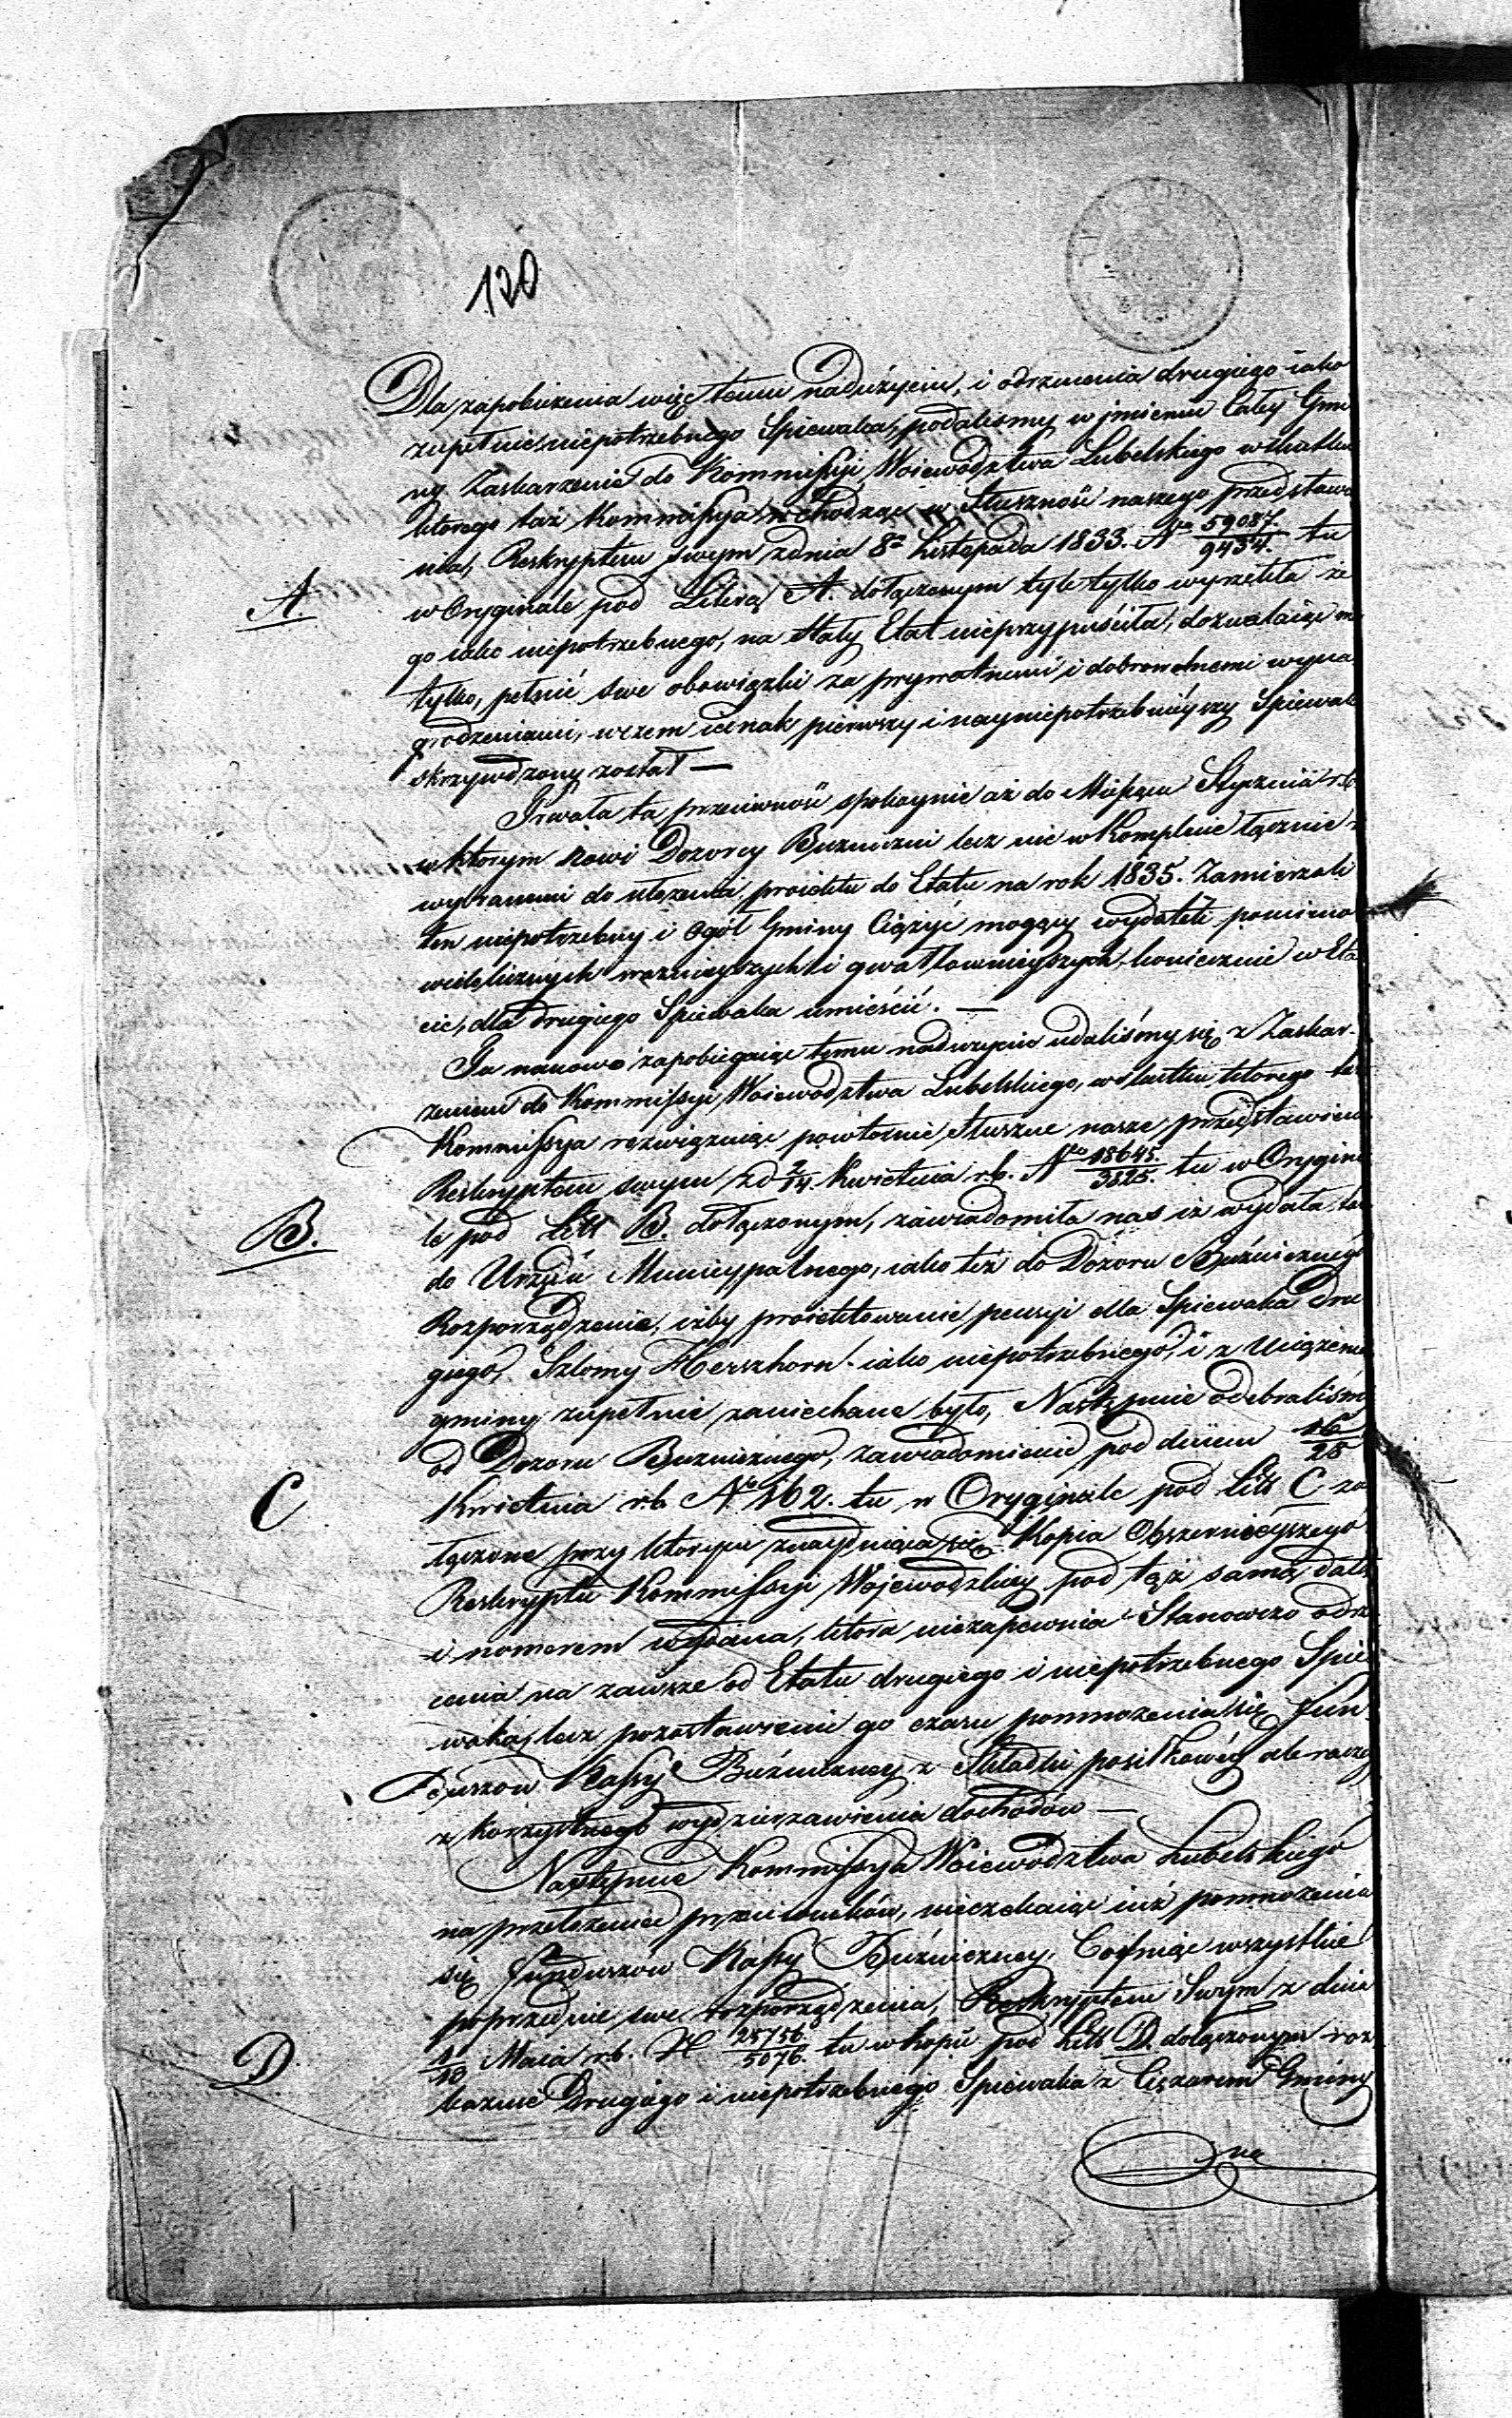 120
Dla zapobieżenia więc temu nadużyciu, i odrzucenia drugiego iako
zupełnie niepotrzebnego Spiewaka, podaliśmy w jmieniu Całey Gmi
ny Zaskarzenie do Kommissyi Woiewództwa Lubelskiego w skutku
którego taż Kommissya wchodząc w Słuszność naszego przedstawie
nia, Reskryptem swym zdnia 8º Listopada 1833. Nro 59087./9434. tu
A.
w Oryginale pod Literą A. dołączonym tyle tylko wyrzekła że
go iako niepotrzebnego, na Stały Etat nieprzypuściła, dozwalaiąc mu
tylko, pełnić swe obowiązki za prywatnemi i dobrowolnemi wyna
grodzeniami, wczem iednak pierwszy i nayniepotrzebnieyszy Spiewak
skrzywdzony został —
Trwała ta przeciwność spokoynie aż do Miesiąca Stycznia r.b.
w którym Nowi Dozorcy Buzniczni lecz nie w Komplecie łącznie z
wybranemi do ułożenia proiektu do Etatu na rok 1835. Zamierzali
ten niepotrzebny i Ogół Gminy Ciążyć mogący wydatek pomimo
wielolicznych ważnieyszych i gwałtownieyszych, koniecznie w Eta
cie, dla drugiego Spiewaka umieścić. —
Ta nanowo zapobiegaiąc temu nadużyciu udaliśmy się z Zaskar-
zeniem do Kommissyi Woiewództwa Lubelskiego, w skutku którego taż
Kommissya rozwiązuiąc powtórnie słuszne nasze przedstawienie
Reskryptem swym z d 2/14. Kwietnia r.b. Nro 18645./3825. tu w Orygina
B.
le pod Litt B. dołączonym, zawiadomiła nas iż wydała tak
do Urzędu Municypalnego, iako też do Dozoru Buźnicznego
Rozporządzenie, iżby proiektowanie pensyi dla Spiewaka Dru
giego, Szlomy Herszhorn iako niepotrzebnego, i z Uciążeniem
gminy zupełnie zaniechane było, Następnie odebraliśmy
od Dozoru Buznicznego, zawiadomienie pod dniem 16/28
C
Kwietnia r.b. Nro 162. tu w Oryginale pod Litt C za
łączone przy którym znayduiąca się Kopia Obszernieyszego
Reskryptu Kommissyi Wojewodzkiey pod tąż samą datą
i nomerem wydana, która niezapewnia Stanowczo odrzu
cenia na zawsze od Etatu drugiego i niepotrzebnego Spie
waka, lecz pozostawieni go czasu pomnożenia się Fun-
duszów Kassy Buźniczney z Składki posiłkowéy ale raczey
z korzystnego wydzierzawienia dochodów —
Następnie Kommissya Woiewództwa Lubelskiego
na przełożenie przeciwników, nieczekaiąc iuż pomnożenia
się Funduszów Kassy Buźniczney, Cofnąc wszystkie
poprzednie swe rozporządzenia, Reskryptem Swym z dnia
D.
1/10 Maia r.b. N 25756./5076. tu w kopii pod Litt D. dołączonym roz
kazuie Drugiego i niepotrzebnego Spiewaka z Ciężarem Gminy
na